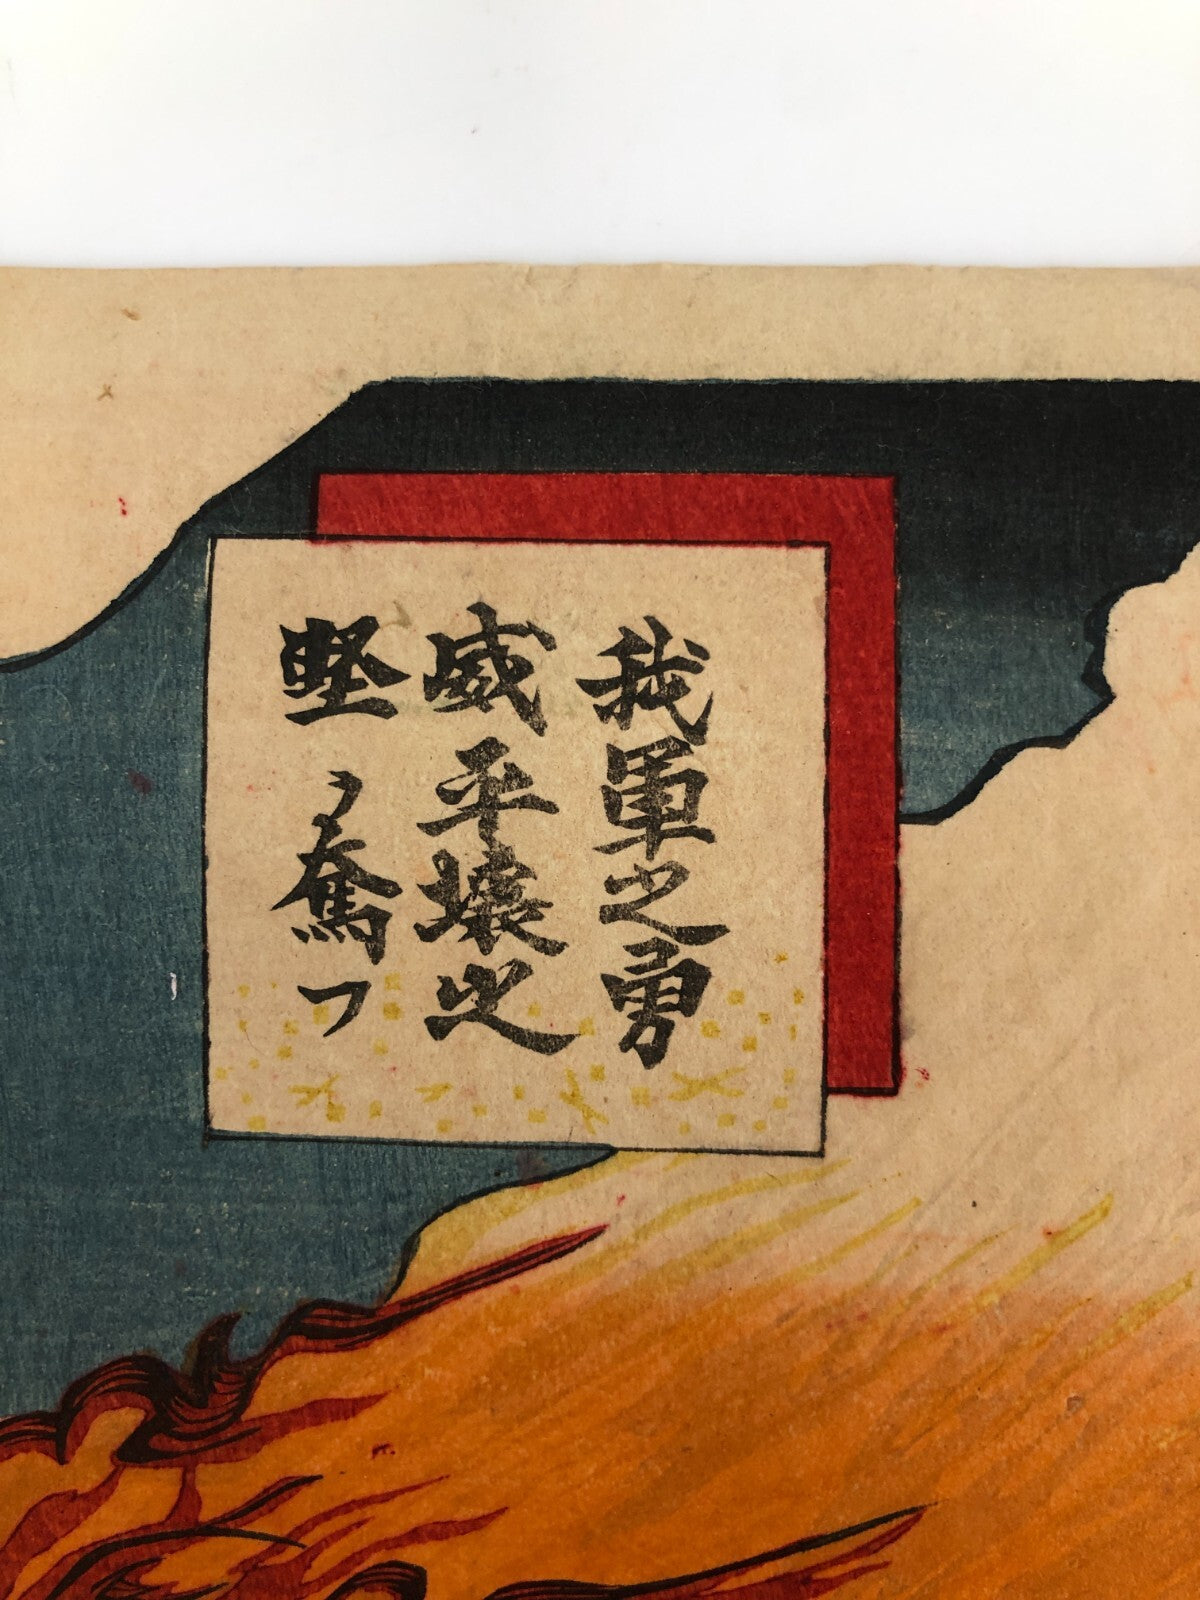 我軍之勇
威平壤之
堅ヲ奪フ